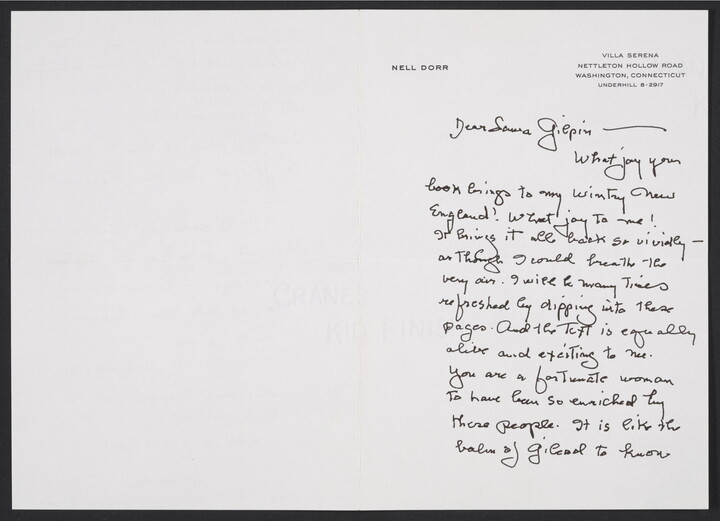 NELL DORR
VILLA SERENA
NETTLETON HOLLOW ROAD
WASHINGTON, CONNECTICUT
UNDERHILL 8-2917
Dear Laura Gilpin —
What joy your
book brings to my wintry New
England! What joy to me!
It brings it all back so vividly —
as though I could breathe the
very air. I will be many times
refreshed by dipping into these
pages. And the text is equally
alive and exciting to me.
You are a fortunate woman
to have been so enriched by
these people. It is like the
balm of Gilead to know
CRANE'S
KID FINISH